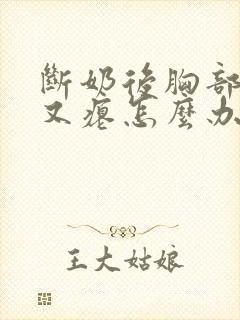 斷奶後胸部
又癟怎麼办
王大姑娘